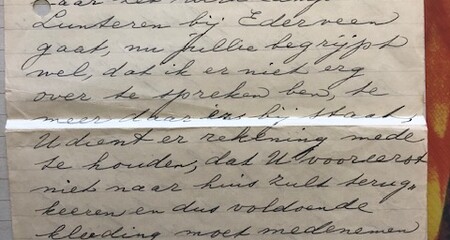 naar het
Lunteren bij Ederveen
gaat, nu jullie begrijpt
wel, dat ik er niet erg
over te spreken ben, te
meer daar er bij staat,
U dient er rekening mede
te houden, dat U vooreerst
niet naar huis zult terug„
keeren en dus voldoende
kleeding moet medenemen